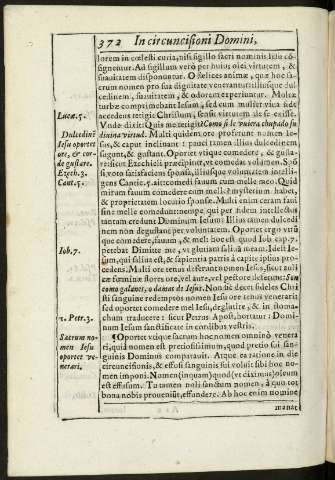 372 In circuncisioni Domini,
lorem in cœlesti curia, nisi sigillo sacri nominis Iesu co
signentur. Ad sigillum verò per huius olei virtutem, &
suauitatem disponuntur. O fœlices animæ, quæ hoc sa
crum nomen pro sua dignitate venerantur: illiusque dul
cedinem, suauitatem, & odorant experiuntur. Multæ
turbæ comprimebant Iesum, sed cum mulier vna
accederet tetigit Christum, sensit virtutem de se exisse.
Lucæ. 5.
Vnde dixit: Quis me tetigit? Como si le vuiera chupado su
diuina virtud. Multi quidem ore proferunt nomen Ie-
Dulcedinẽ
Iesu oportet
ore, & cor-
de gustare.
sus, & caput inclinant: pauci tamen illius dulcedinem
sugunt, & gustant. Oportet vtique comedere, & gusta-
re sicut Ezechieli præcipitur, vt comedat volumen. Spõ
Ezech. 3.
Cant. 5.
si voto satisfaciens sponsa, illiusque voluntatem intelli-
gens Cantic. 5. ait: comedi fauum cum melle meo. Quid
mirum fauum comedere cum melle? mysterium habet,
& proprietatem locurio sponse. Multi enim ceram fa-
sine melle comedunt: nempe, qui per fidem intellectus
tantum credunt Dominum Iesum: Illius tamen dulcedi
nem non degustant per voluntatem. Oportet ergo vtrũ
que comedere, fauum, & mel: hoc est quod Iob cap. 7.
Iob. 7.
precabat Dimitte me, vt glutiam saliuã meam. Idest Ie-
sum, qui filius est, & sapientia patris à capite ipsius pro
cedens. Multi ore tenus deferunt nomen Iesus, sicut auli
cæ fœminæ flores ore, vel aure, vel pectore deferunt: Son
como galanes, o damas de Iesus. Non sic decet fideles Chri
sti sanguine redemptos nomen Iesu ore tenus venerari
sed oportet comedere mel Iesu, deglutire, & in stoma-
chum traducere: sicut Petrus Apost. hortatur: Domi-
1. Petr. 3.
num Iesum sanctificate in cordibus vestris.
Sacrum no-
men Iesu
oportet ve-
nerari.
¶Oportet vtique sacrum hoc nomen omninò venera
ri, quia nomen est preciosissimum, quod pretio sui san-
guinis Dominus comparauit. Atque ea ratione in die
circuncisionis, & effusi sanguinis sui voluit sibi hoc no-
men imponi. Nomen (inquam) quod (vt diximus) oleum
est effusum. Tu tamen noli sanctum nomen, à quo tot
bona nobis proueniũt, effundere. Ab hoc enim nomine
manat